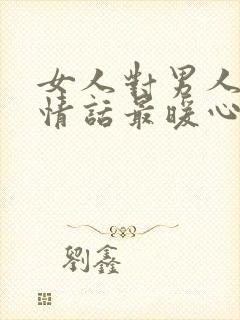 女人對男人
情話最暖心
劉鑫